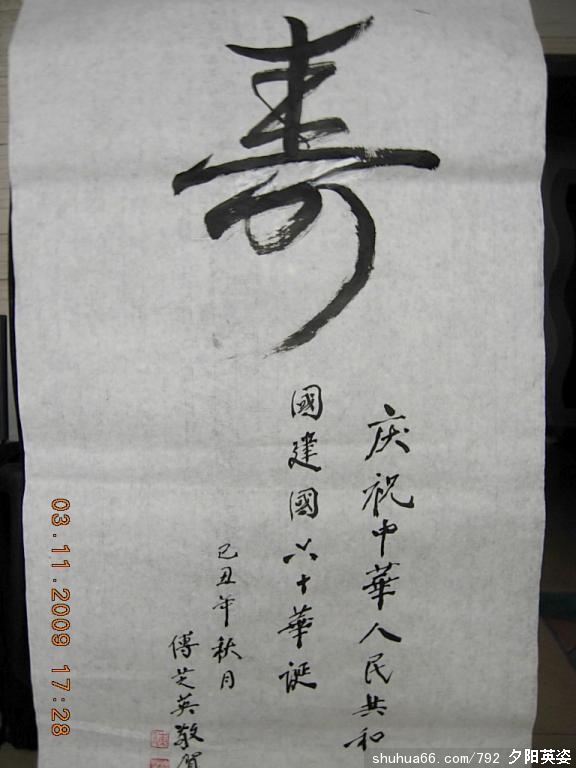 寿
庆祝中華人民共和
國建國六十華诞
己丑年秋月
傅芝英敬賀
03.11.2009 17:28
shuhua66.com/792 夕阳英姿